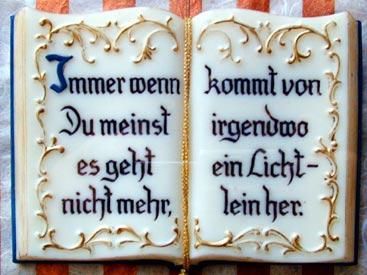 Immer wenn
Du meinst
es geht
nicht mehr,
kommt von
irgendwo
ein Licht-
lein her.